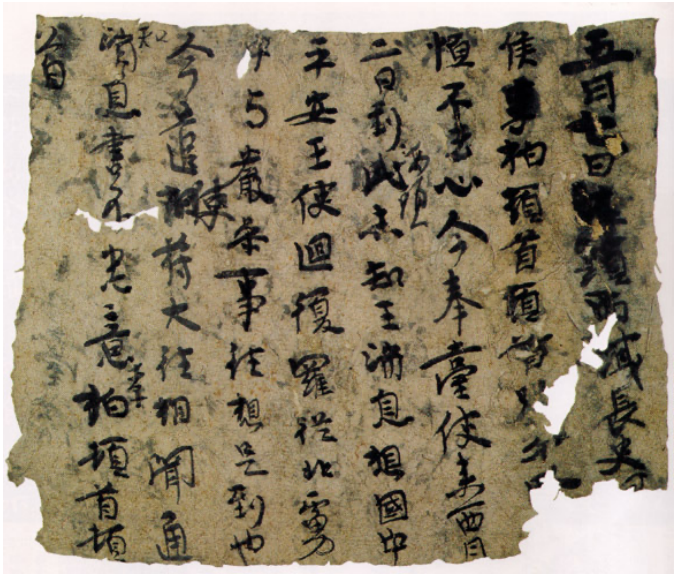 五月七日海頭西域長史
侯李柏頓首頓首別
恒不去心今奉臺使来西月
二日到此海頭未知王消息想國中
平安王使迴復羅従北虜
中与嚴参事往想是到也
今遣使苻大往相聞通
知消息書不悉意李柏頓首頓
首